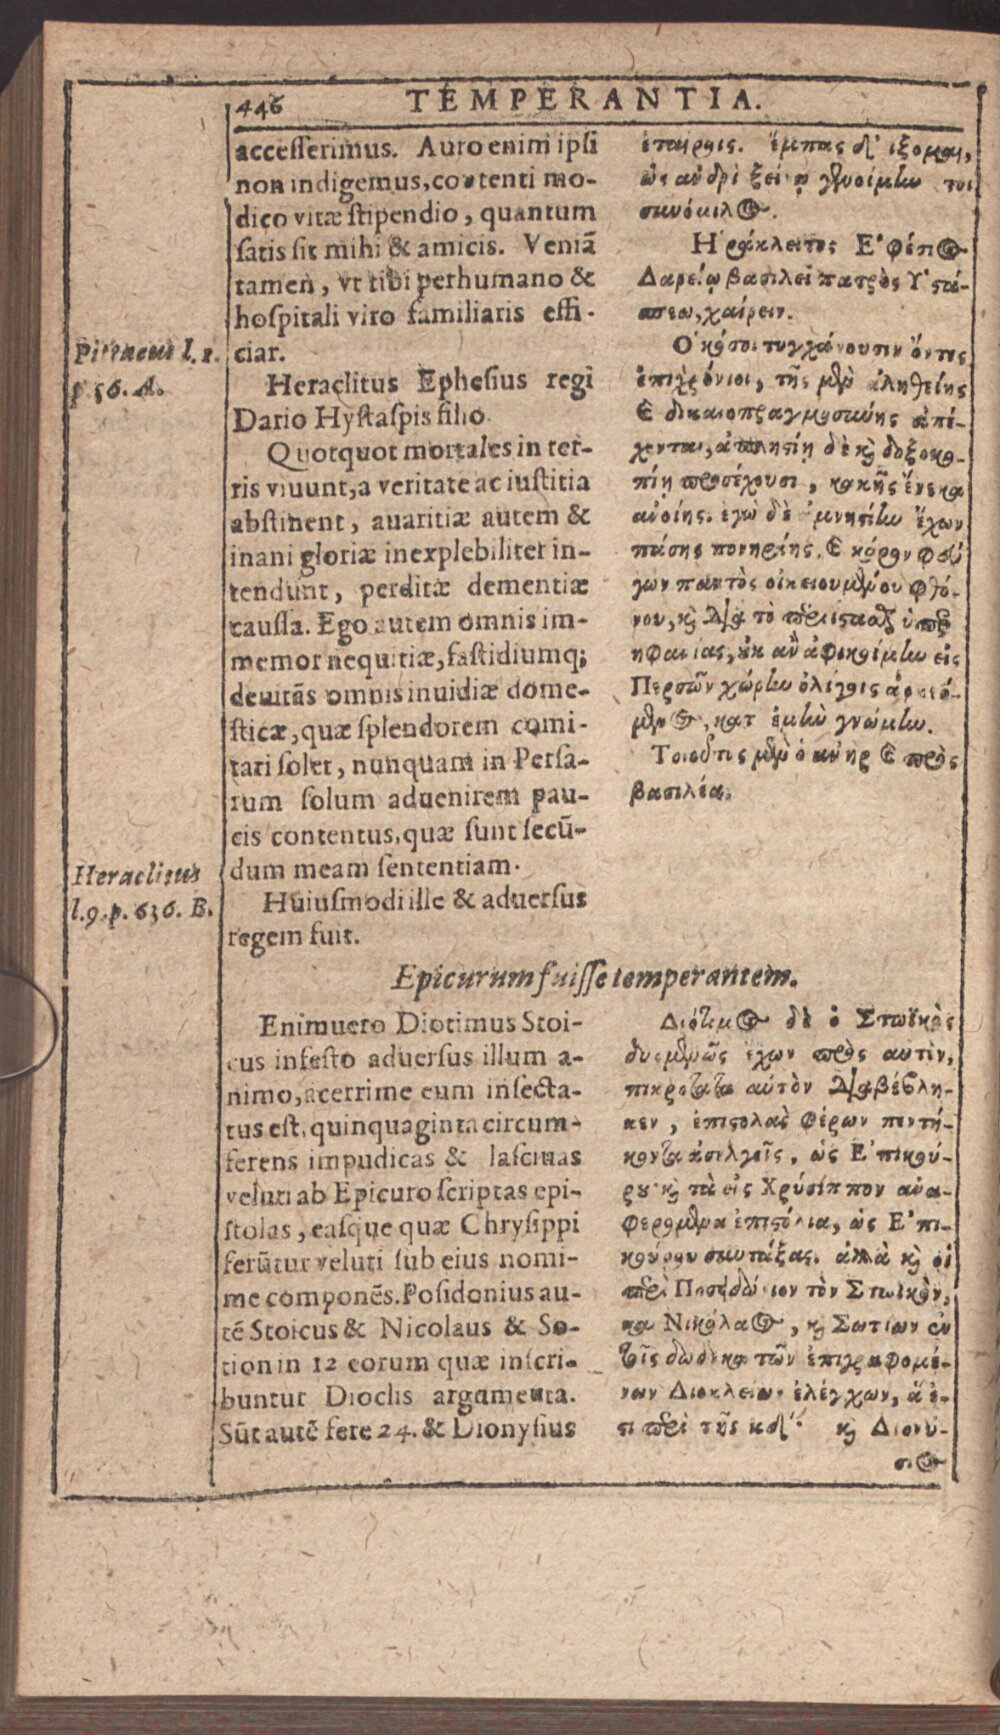 446 TEMPERANTIA.
accesserimus. Auro enim ipsi
non indigemus, contenti mo-
dico vitæ stipendio, quantum
satis sit mihi & amicis. Veniã
tamen, vt tibi perhumano &
hospitali viro familiaris effi-
ciar.
Heraclitus Ephesius regi
Dario Hystaspis filio
Quotquot mortales in ter-
ris viuunt, a veritate ac iustitia
abstinent, auaritiæ autem &
inani gloriæ inexplebiliter in-
tendunt, perditæ dementiæ
caussa. Ego autem omnis im-
memor nequitiæ, fastidiumq;
deuitãs omnis inuidiæ dome-
sticæ, quæ splendorem comi-
tari solet, nunquam in Persa-
rum solum aduenirem pau-
cis contentus, quæ sunt secũ-
dum meam sententiam.
Huiusmodi ille & aduersus
regem fuit.
l. 1.
p. 56. A.
Heraclitus
l. 9. p. 636. B.
ἑταίροις. ἔμπας δ' ἵξομαι,
ὡς ἀνδρὶ ξείνῳ γενοίμην τοι
συνόμιλος.
Ἡράκλειτος Ἐφέσιος
Δαρείῳ βασιλεῖ πατρὸς Ὑστά-
σπεω, χαίρειν.
Ὁκόσοι τυγχάνουσιν ὄντες
ἐπιχθόνιοι, τῆς μὲν ἀληθείης
καὶ δικαιοπραγμοσύνης ἀπέ-
χονται, ἀπλησίῃ δὲ καὶ δοξοκο-
πίῃ προσέχουσι, κακῆς ἕνεκα
ἀνοίης. ἐγὼ δὲ ἀμνηστίην ἔχων
πάσης πονηρίης. καὶ κόρον φεύ
γων παντὸς οἰκειουμένου φθό-
νου, καὶ διὰ τὸ περιίστασθαι ὑπερ
ηφανίας, οὐκ ἂν ἀφικοίμην εἰς
Περσῶν χώρην ὀλίγοις ἀρκεό-
μενος, κατ' ἐμὴν γνώμην.
Τοιοῦτος μὲν ὁ ἀνὴρ καὶ πρὸς
βασιλέα.
Epicurum fuisse temperantem.
Enimuero Diotimus Stoi-
cus infesto aduersus illum a-
nimo, acerrime eum insecta-
tus est, quinquaginta circum-
ferens impudicas & lasciuas
veluti ab Epicuro scriptas epi-
stolas, easque quæ Chrysippi
ferũtur veluti sub eius nomi-
me componẽs. Posidonius au-
tẽ Stoicus & Nicolaus & So-
tion in 12 eorum quæ inscri-
buntur Dioclis argumenta.
Sũt autẽ fere 24. & Dionysius
Διότιμος δὲ ὁ Στωϊκὸς
δυσμενῶς ἔχων πρὸς αὐτὸν,
πικρότατα αὐτὸν διαβέβλη-
κεν, ἐπιστολὰς φέρων πεντή-
κοντα ἀσελγεῖς, ὡς Ἐπικού-
ρου καὶ τὰ εἰς Χρύσιππον ἀνα-
φερόμενα ἐπιστόλια, ὡς Ἐπι-
κούρου συντάξας. ἀλλὰ καὶ οἱ
περὶ Ποσειδώνιον τὸν Στωϊκὸν,
καὶ Νικόλαος, καὶ Σωτίων ἐν
τοῖς δώδεκα τῶν ἐπιγραφομέ-
νων Διοκλείων ἐλέγχων, ἅ ἐ-
στι περὶ τῆς κδʹ. καὶ Διονύ-
σιος